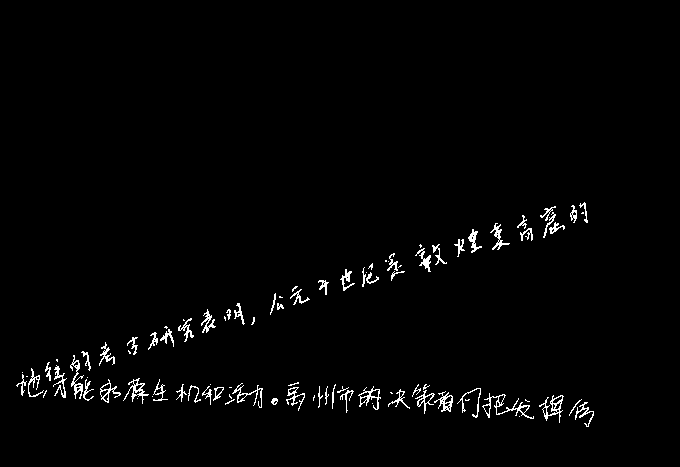 往的考古研究表明，公元十世纪是敦煌莫高窟的
地才能永葆生机和活力。禹州市的决策者们把发挥传